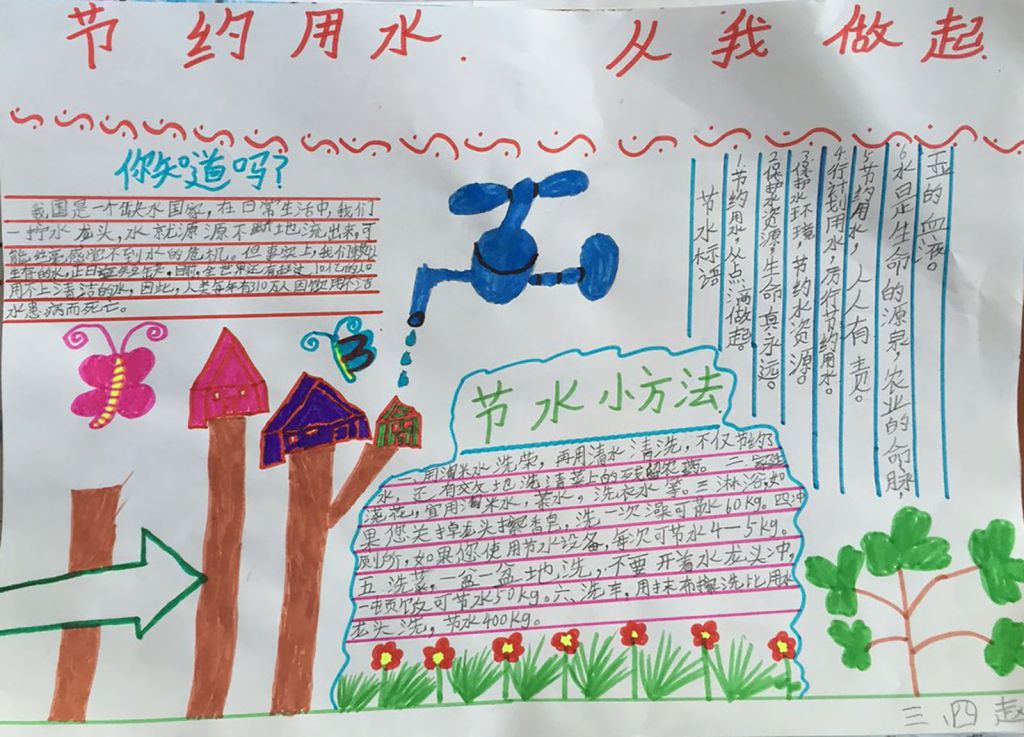 节约用水. 从我做起.
你知道吗?
我国是一个缺水国家,在日常生活中,我们
一拧水龙头,水就源源不断地流出来,可
能丝毫感觉不到水的危机。但事实上,我们赖以
生存的水,正日益短缺。目前,全世界还有超过10亿的人口
用不上清洁的水,因此,人类每年有310万人因饮用不洁
水患病而死亡。
节水标语
1.节约用水,从点滴做起。
2.保护水资源,生命真永远。
3.保护水环境,节约水资源。
4.行计划用水,厉行节约用水。
5.节约用水,人人有责。
6.水是生命的源泉,农业的命脉,
工业的血液。
节水小方法
一、用淘米水洗菜,再用清水清洗,不仅节约了
水,还有效地洗清菜上的残留农药。二、
浇花,宜用淘米水,茶水,洗衣水等。三淋浴,如
果您关掉龙头擦香皂,洗一次澡可雨水60kg。四.冲
厕所,如果您使用节水设备,每次可节水4—5kg。
五.洗菜,一盆一盆地洗,不要开着水龙头冲,
一顿饭可节水50kg。六、洗车,用抹布擦洗比用水
龙头洗,节水400kg。
三、四 赵